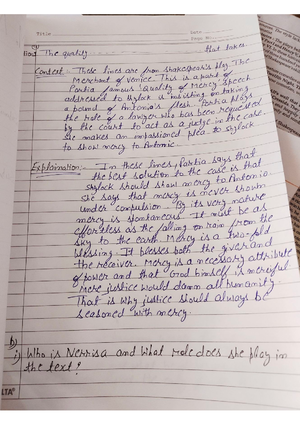 The quality that takes
Context - These lines are from Shakespear's play The
Merchant of Venice. This is a part of
Portia famous 'Quality of Mercy' speech
addressed to Shylock is insisting on taking
a pound of Antonio's flesh. Portia plays
the role of a lawyer who has been requested
by the court to act as a judge in the case.
She makes an impassioned plea to Shylock
to show mercy to Antonio
Explaination:- In these lines, Portia says that
the best solution to the case is that
Shylock should show mercy to Antonio.
She says that mercy is never shown
under compulsion. By its very nature
mercy is spontaneous. It must be as
effortless as the falling on rain from the
sky to the earth. Mercy is a two-fold
blessing. It blesses both the giver and
the receiver. Mercy is a necessary attribute
of power and that God himself is merciful
Mere justice would damn all humanity.
That is why justice should always be
seasoned with mercy.
b)
i) Who is Nerrisa and What role does she play in
the text?